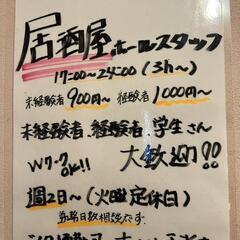 居酒屋ホールスタッフ
17:00~24:00(3h~)
未経験者900円~ 経験者1000円~
未経験者、経験者、学生さん
Wワークok!! 大歓迎!!
週2日~(火曜定休日)
勤務日数相談可です。